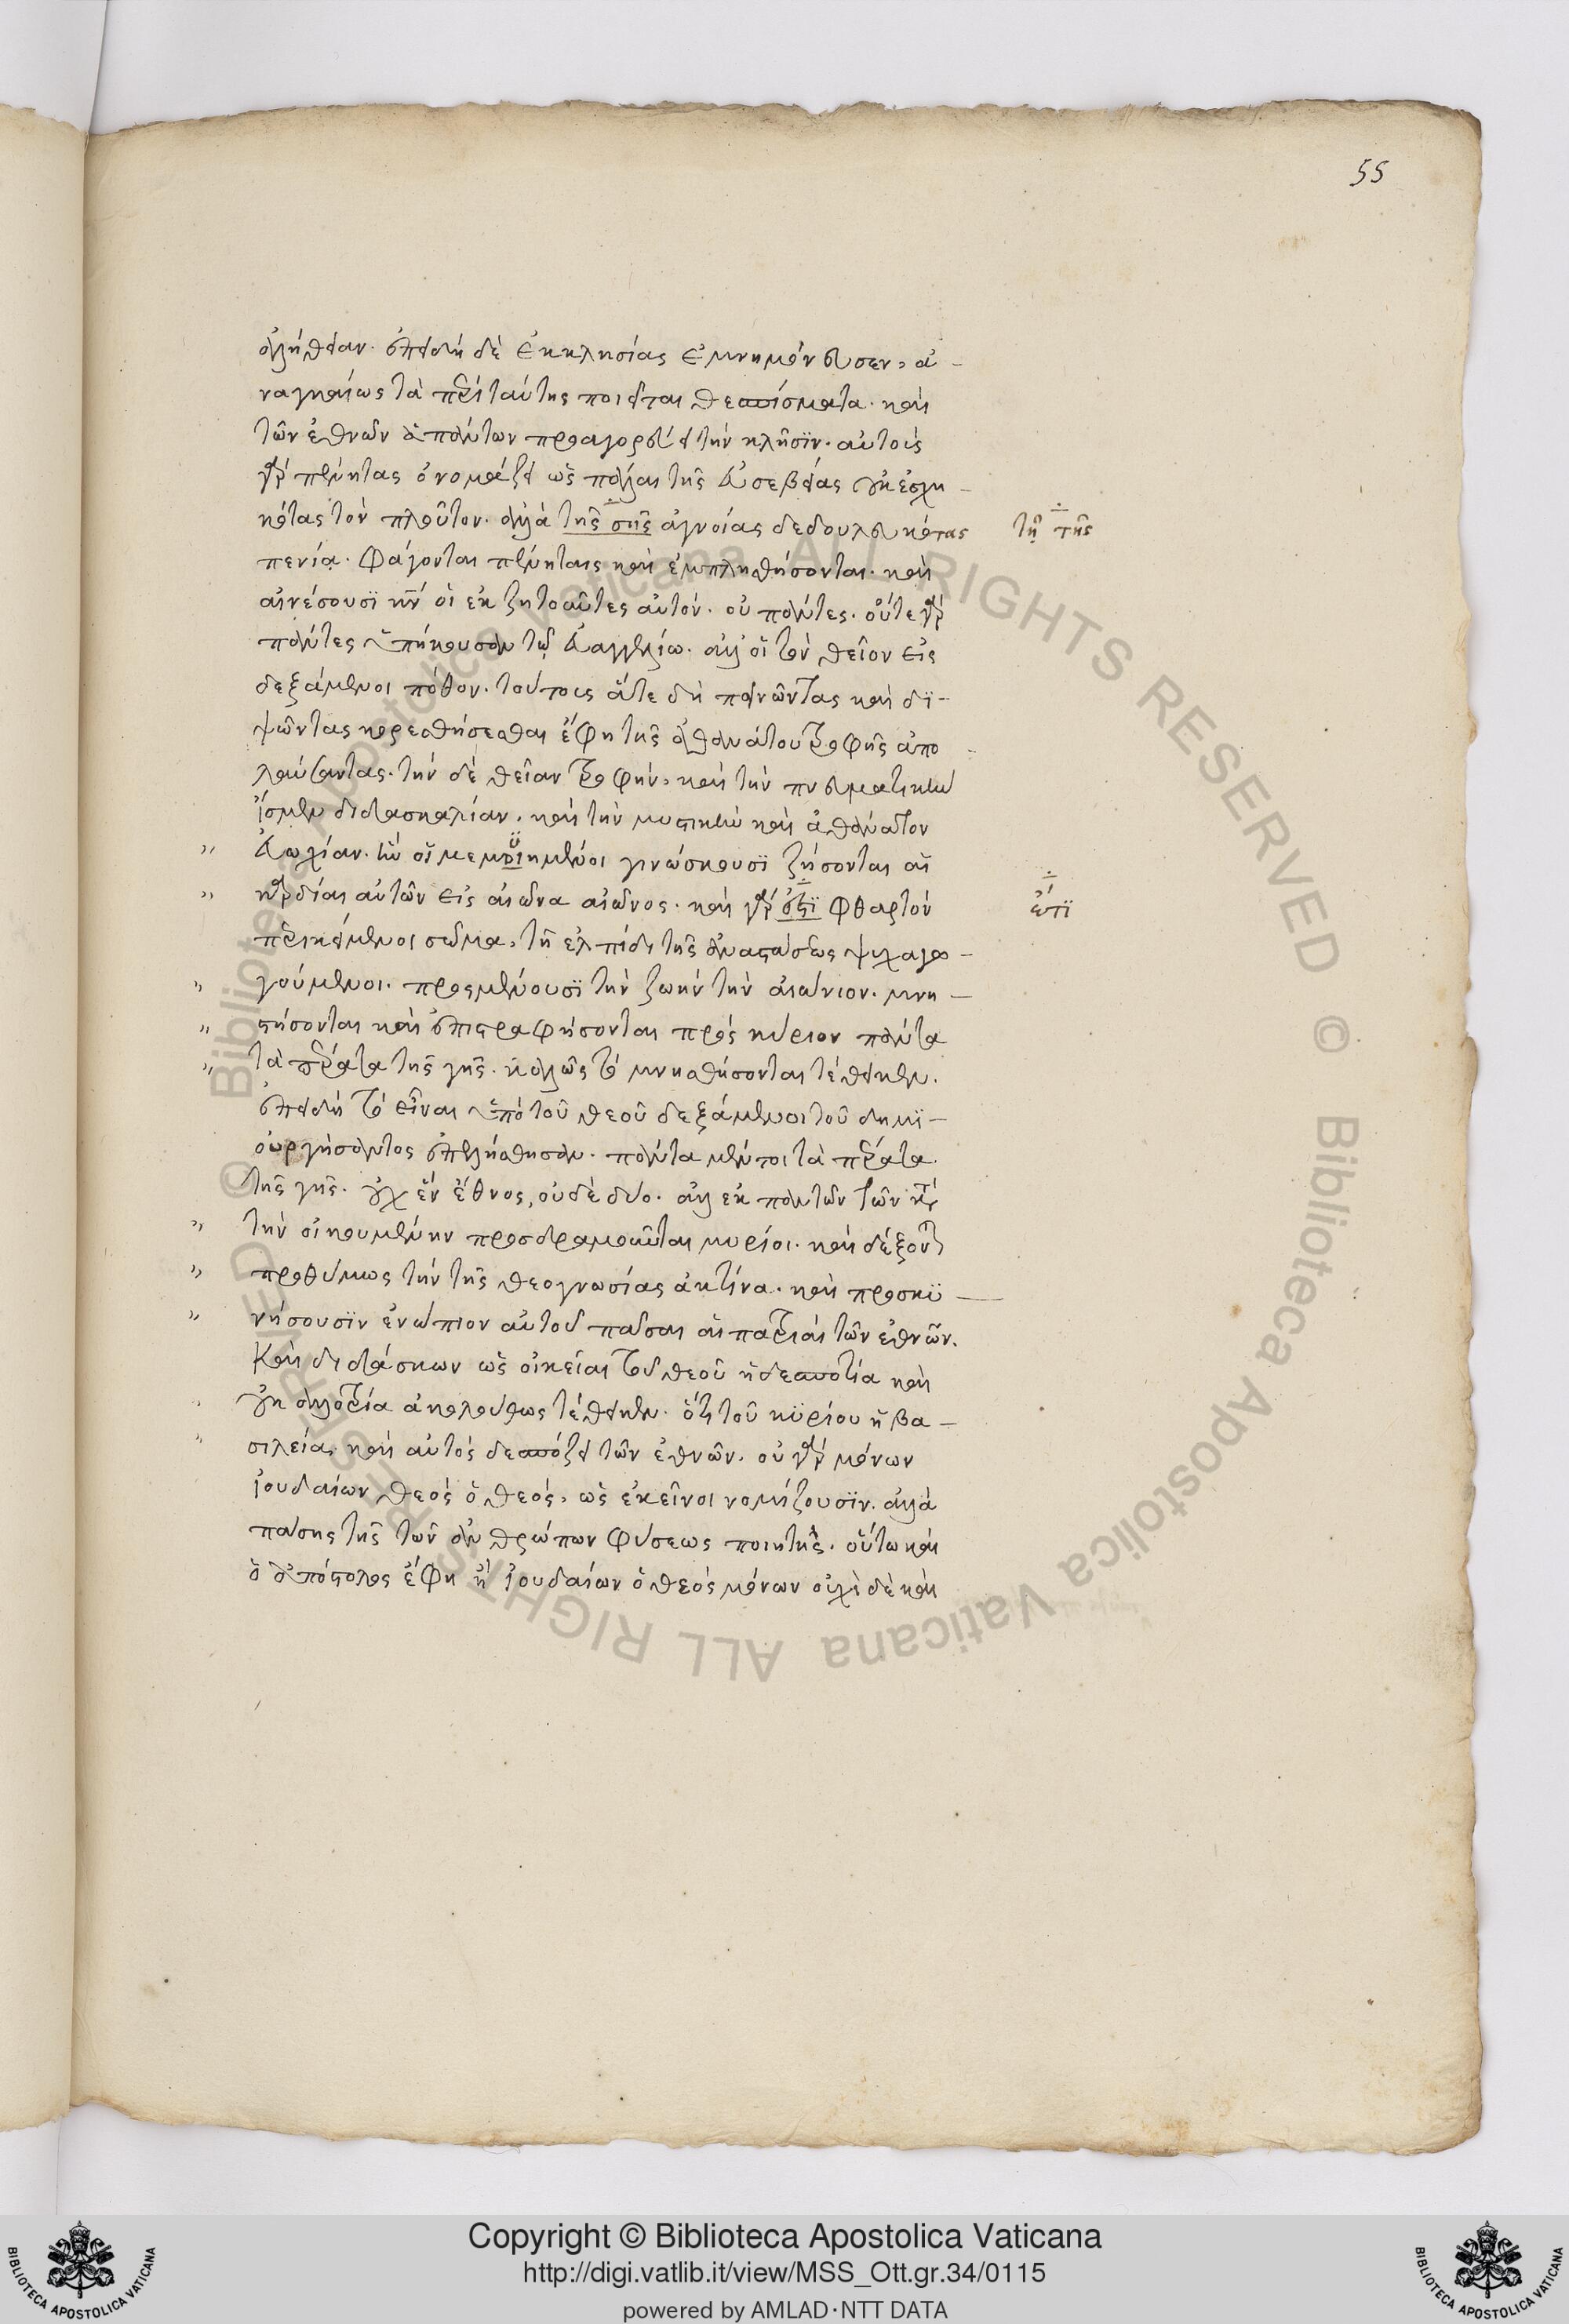 55
ἀλήθειαν. ἐπειδὴ δὲ ἐκκλησίας ἐμνημόνευσεν, ἀ-
ναγκαίως τὰ περὶ ταύτης ποιεῖται θεσπίσματα. καὶ
τῶν ἐθνῶν ἁπάντων προαγορεύει τὴν κλῆσϊν. αὐτοὺς
γὰρ πένητας ὀνομάζει ὡς πάλαι τῆς εὐσεβείας οὐκ ἐσχη-
κότας τὸν πλοῦτον. ἀλλὰ τῆς σῆς ἀγνοίας δεδουλευκότας
τῇ τῆς
πενίᾳ. φάγονται πένητες καὶ ἐμπλησθήσονται. καὶ
αἰνέσουσϊ κν οἱ ἐκζητοῦντες αὐτόν. οὐ πάντες. οὔτε γὰρ
πάντες ὑπήκουσαν τῷ εὐαγγελίω. ἀλλ οἱ τὸν θεῖον εἰς
δεξάμενοι πόθον. τούτους ἅτε δὴ πεινῶντας καὶ δϊ-
ψῶντας κορεσθήσεσθαι ἔφη τῆς ἀθανάτου τροφῆς ἀπο
λαύσαντας. τὴν δὲ θείαν τροφὴν, καὶ τὴν πνευματικὴν
ἴσμεν διδασκαλίαν. καὶ τὴν μυστικὴν καὶ ἀθάνατον
" εὐωχίαν. ἣν οἱ μεμυημένοι γινώσκουσϊ ζήσονται αἱ
" καρδίαι αὐτῶν εἰς αἰῶνα αἰῶνος. καὶ γὰρ ἐστϊ φθαρτὸν
ἔτϊ
περικείμενοι σῶμα, τῇ ἐλπίδι τῆς ἀναστάσεως ψυχαγω-
" γούμενοι. προςμένουσϊ τὴν ζωὴν τὴν αἰώνιον. μνη-
" σθήσονται καὶ ἐπιστραφήσονται πρὸς κύριον πάντα
" τὰ πέρατα τῆς γῆς. καλῶς τὸ μνησθήσονται τέθεικεν.
ἐπειδὴ τὸ εἶναι ὑπὸ τοῦ θεοῦ δεξάμενοι τοῦ δημϊ-
ουργήσαντος ἐπελήσθησαν. πάντα μέντοι τὰ πέρατα
τῆς γῆς. οὐχ ἓν ἔθνος, οὐδὲ δύο. ἀλλ ἐκ πάντων τῶν κατὰ
" τὴν οἰκουμένην προσδραμοῦνται μυρίοι. καὶ δέξονται
" προθύμως τὴν τῆς θεογνωσίας ἀκτίνα. καὶ προσκϋ-
" νήσουσϊν ἐνώπιον αὐτοῦ πᾶσαι αἱ πατριαὶ τῶν ἐθνῶν.
Καὶ διδάσκων ὡς οἰκεία τοῦ θεοῦ ἡ δεσποτία καὶ
οὐκ ἀλλοτρία ἀκολούθως τέθεικεν. ὅτι τοῦ κϋρίου ἡ βα-
σιλεία, καὶ αὐτὸς δεσπόζει τῶν ἐθνῶν. οὐ γὰρ μόνων
ἰουδαίων θεὸς ὁ θεὸς, ὡς ἐκεῖνοι νομίζουσϊν. ἀλλὰ
πάσης τῆς τῶν ἀνθρώπων φύσεως ποιητής. οὕτω καὶ
ὁ ἀπόστολος ἔφη ἢ ἰουδαίων ὁ θεὸς μόνων οὐχὶ δὲ καὶ
Copyright © Biblioteca Apostolica Vaticana
http://digi.vatlib.it/view/MSS_Ott.gr.34/0115
powered by AMLAD·NTT DATA